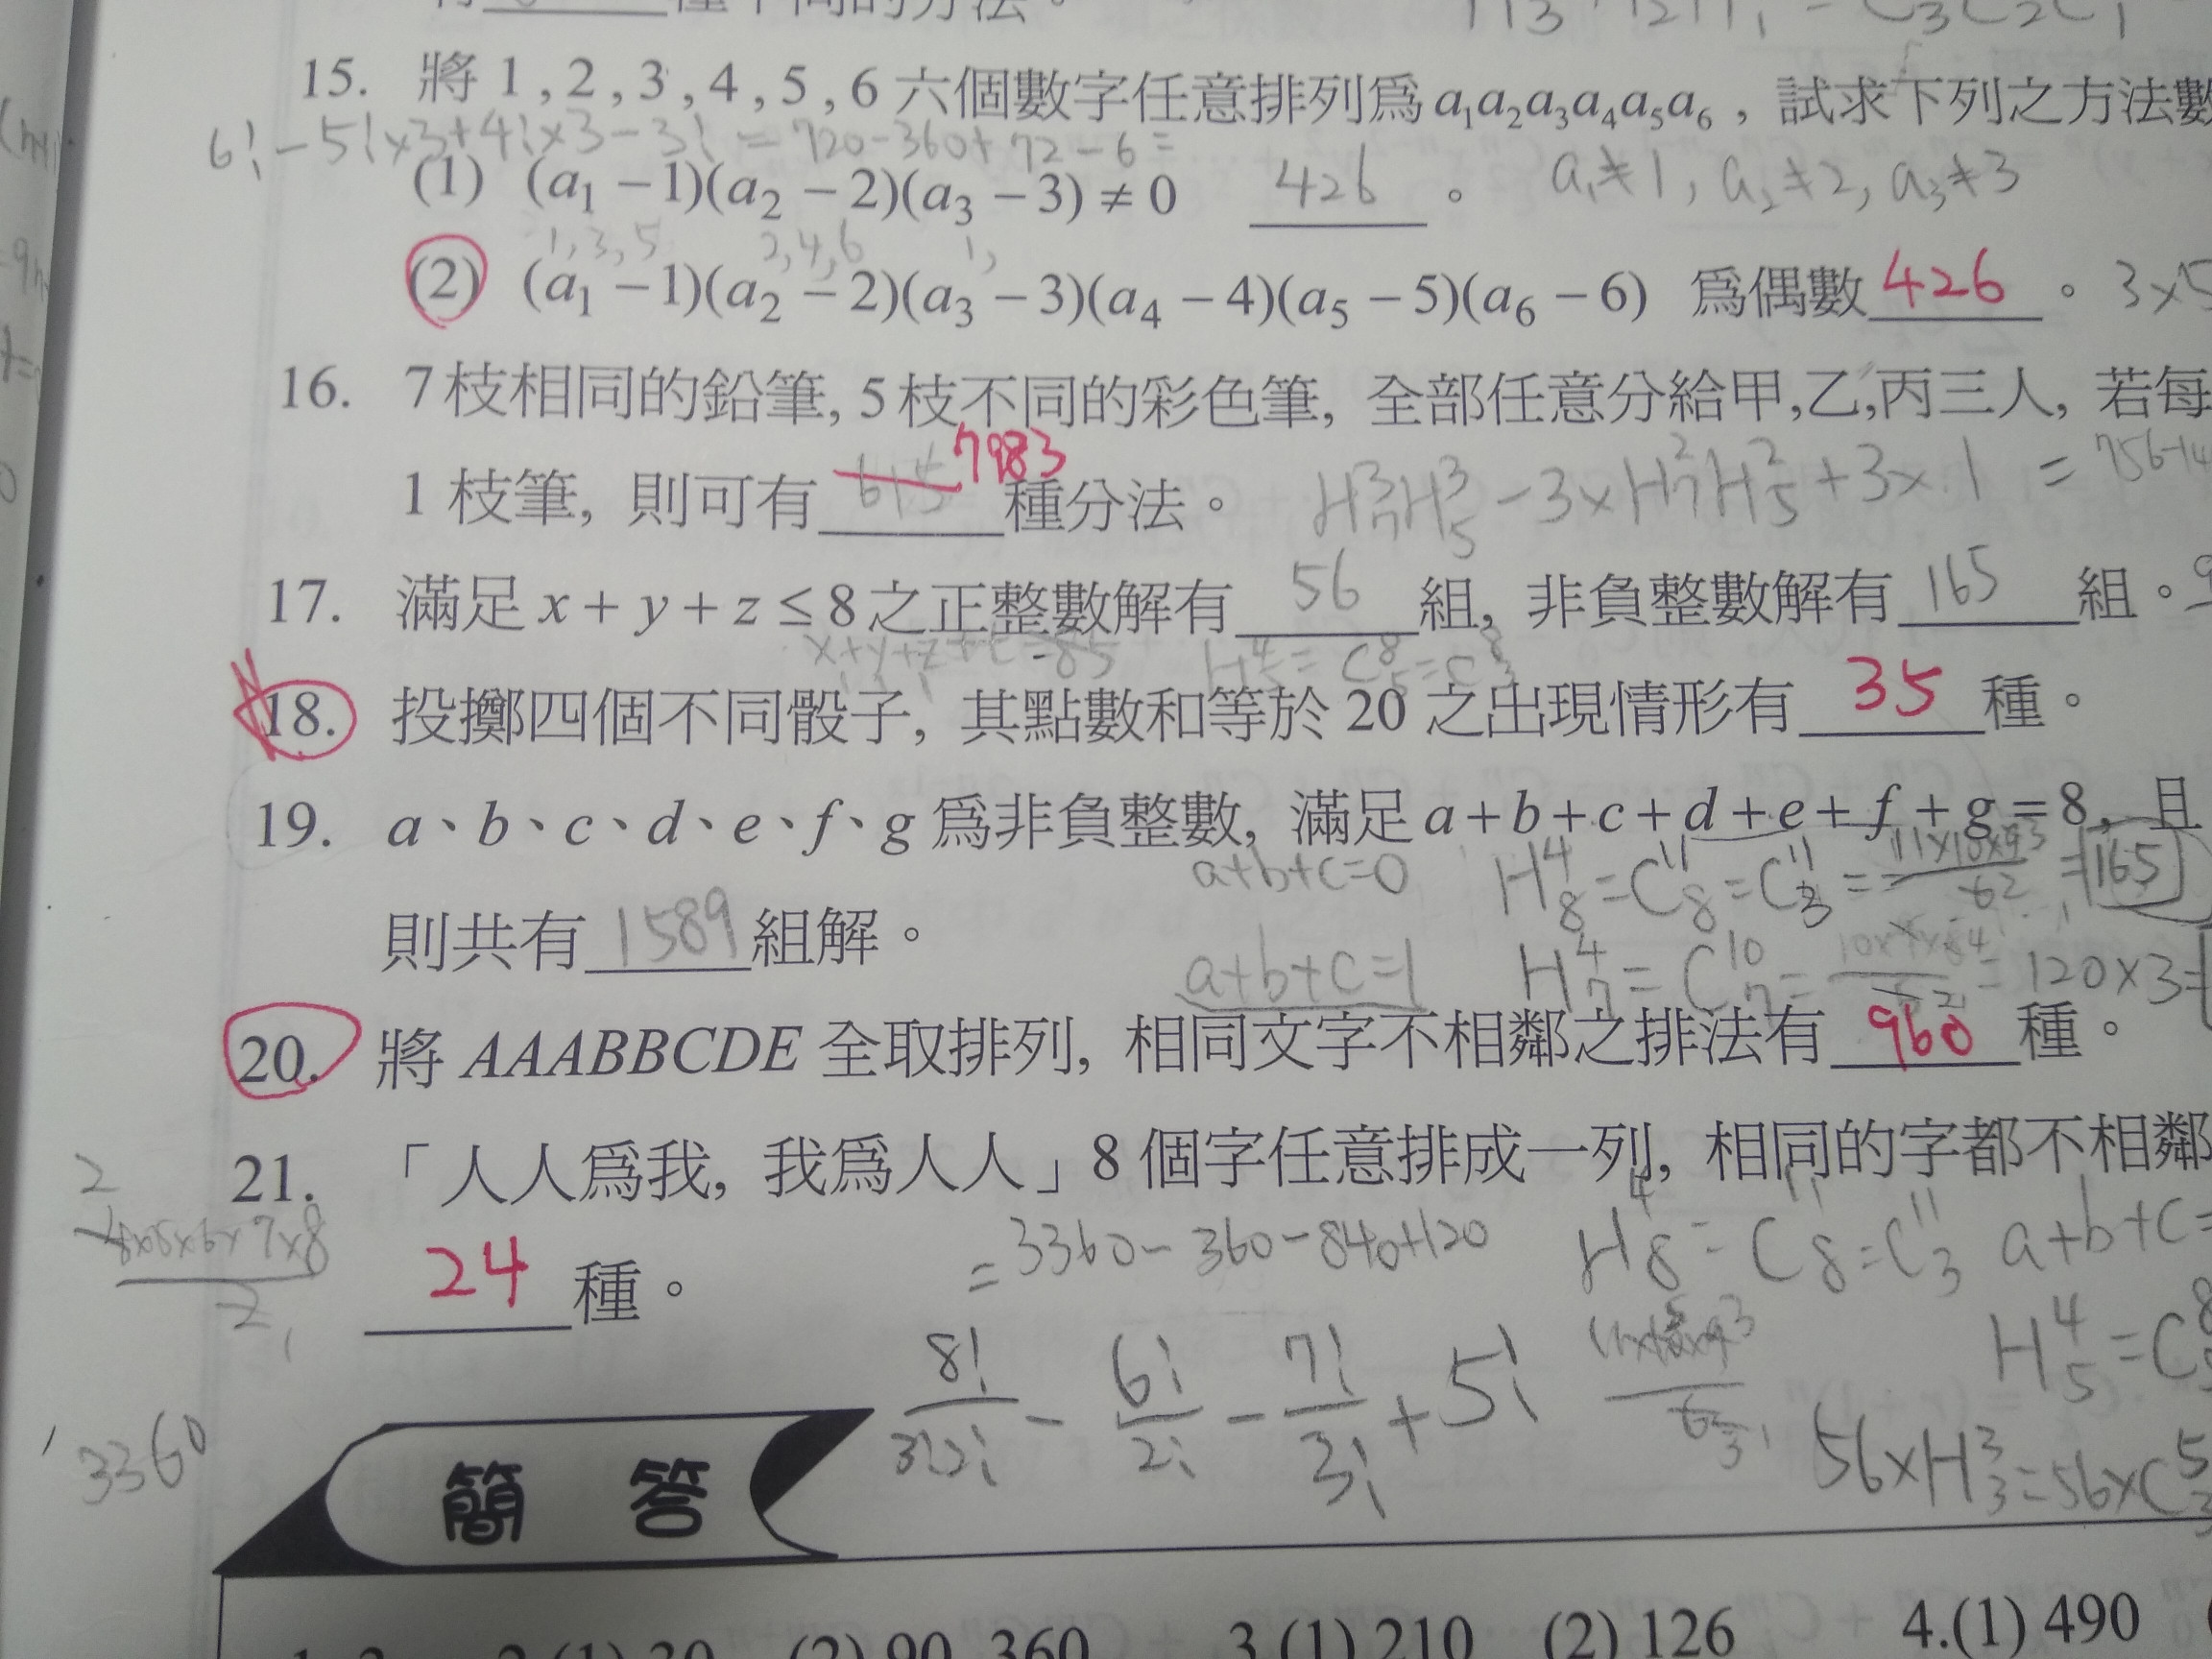 15. 將 1 , 2 , 3 , 4 , 5 , 6 六個數字任意排列爲 a₁a₂a₃a₄a₅a₆ , 試求下列之方法數
6! − 5!×3 + 4!×3 − 3! = 720−360+72−6=
(1) (a₁ − 1)(a₂ − 2)(a₃ − 3) ≠ 0 426 。 a₁≠1, a₂≠2, a₃≠3
1,3,5 2,4,6 1,
(2) (a₁ − 1)(a₂ − 2)(a₃ − 3)(a₄ − 4)(a₅ − 5)(a₆ − 6) 爲偶數 426 。 3×5
16. 7 枝相同的鉛筆, 5 枝不同的彩色筆, 全部任意分給甲,乙,丙三人, 若每
7983
1 枝筆, 則可有 615 種分法。 H³₇H³₅ − 3×H²₇H²₅ + 3×1 = 756−14
17. 滿足 x + y + z ≤ 8 之正整數解有 56 組, 非負整數解有 165 組。
18. 投擲四個不同骰子, 其點數和等於 20 之出現情形有 35 種。
19. a、b、c、d、e、f、g 爲非負整數, 滿足 a + b + c + d + e + f + g = 8, 且
a+b+c=0 H⁴₈=C¹¹₈=C¹¹₃= 11×10×9 =165
則共有 1589 組解。
a+b+c=1 H⁴₇=C¹⁰₇= =120×3=
20. 將 AAABBCDE 全取排列, 相同文字不相鄰之排法有 960 種。
21. 「人人爲我, 我爲人人」8 個字任意排成一列, 相同的字都不相鄰
=3360−360−840+120 H⁴₈=C¹¹₈=C¹¹₃ a+b+c=
24 種。
8!/3!2! − 6!/2! − 7!/3! + 5! H⁴₅=C⁸
3360 56×H³₃=56×C⁵₃
簡 答
(2) 90 360 3.(1) 210 (2) 126 4.(1) 490